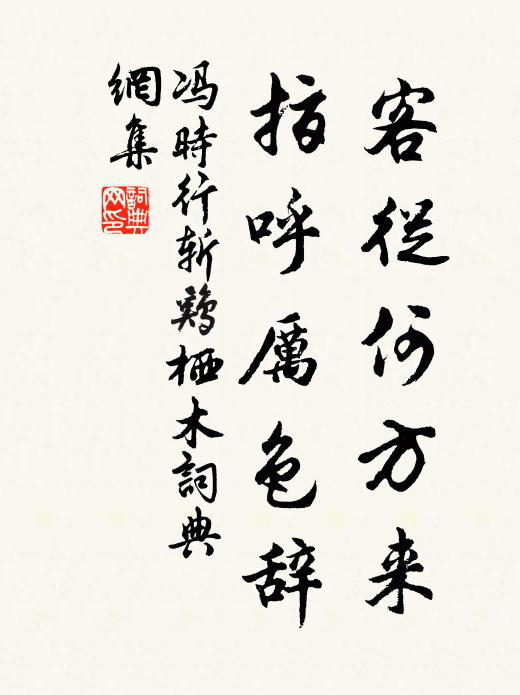 客從何方来
指呼厲色辞
冯時行斩鷄栖木詞典
網集
詞典网印